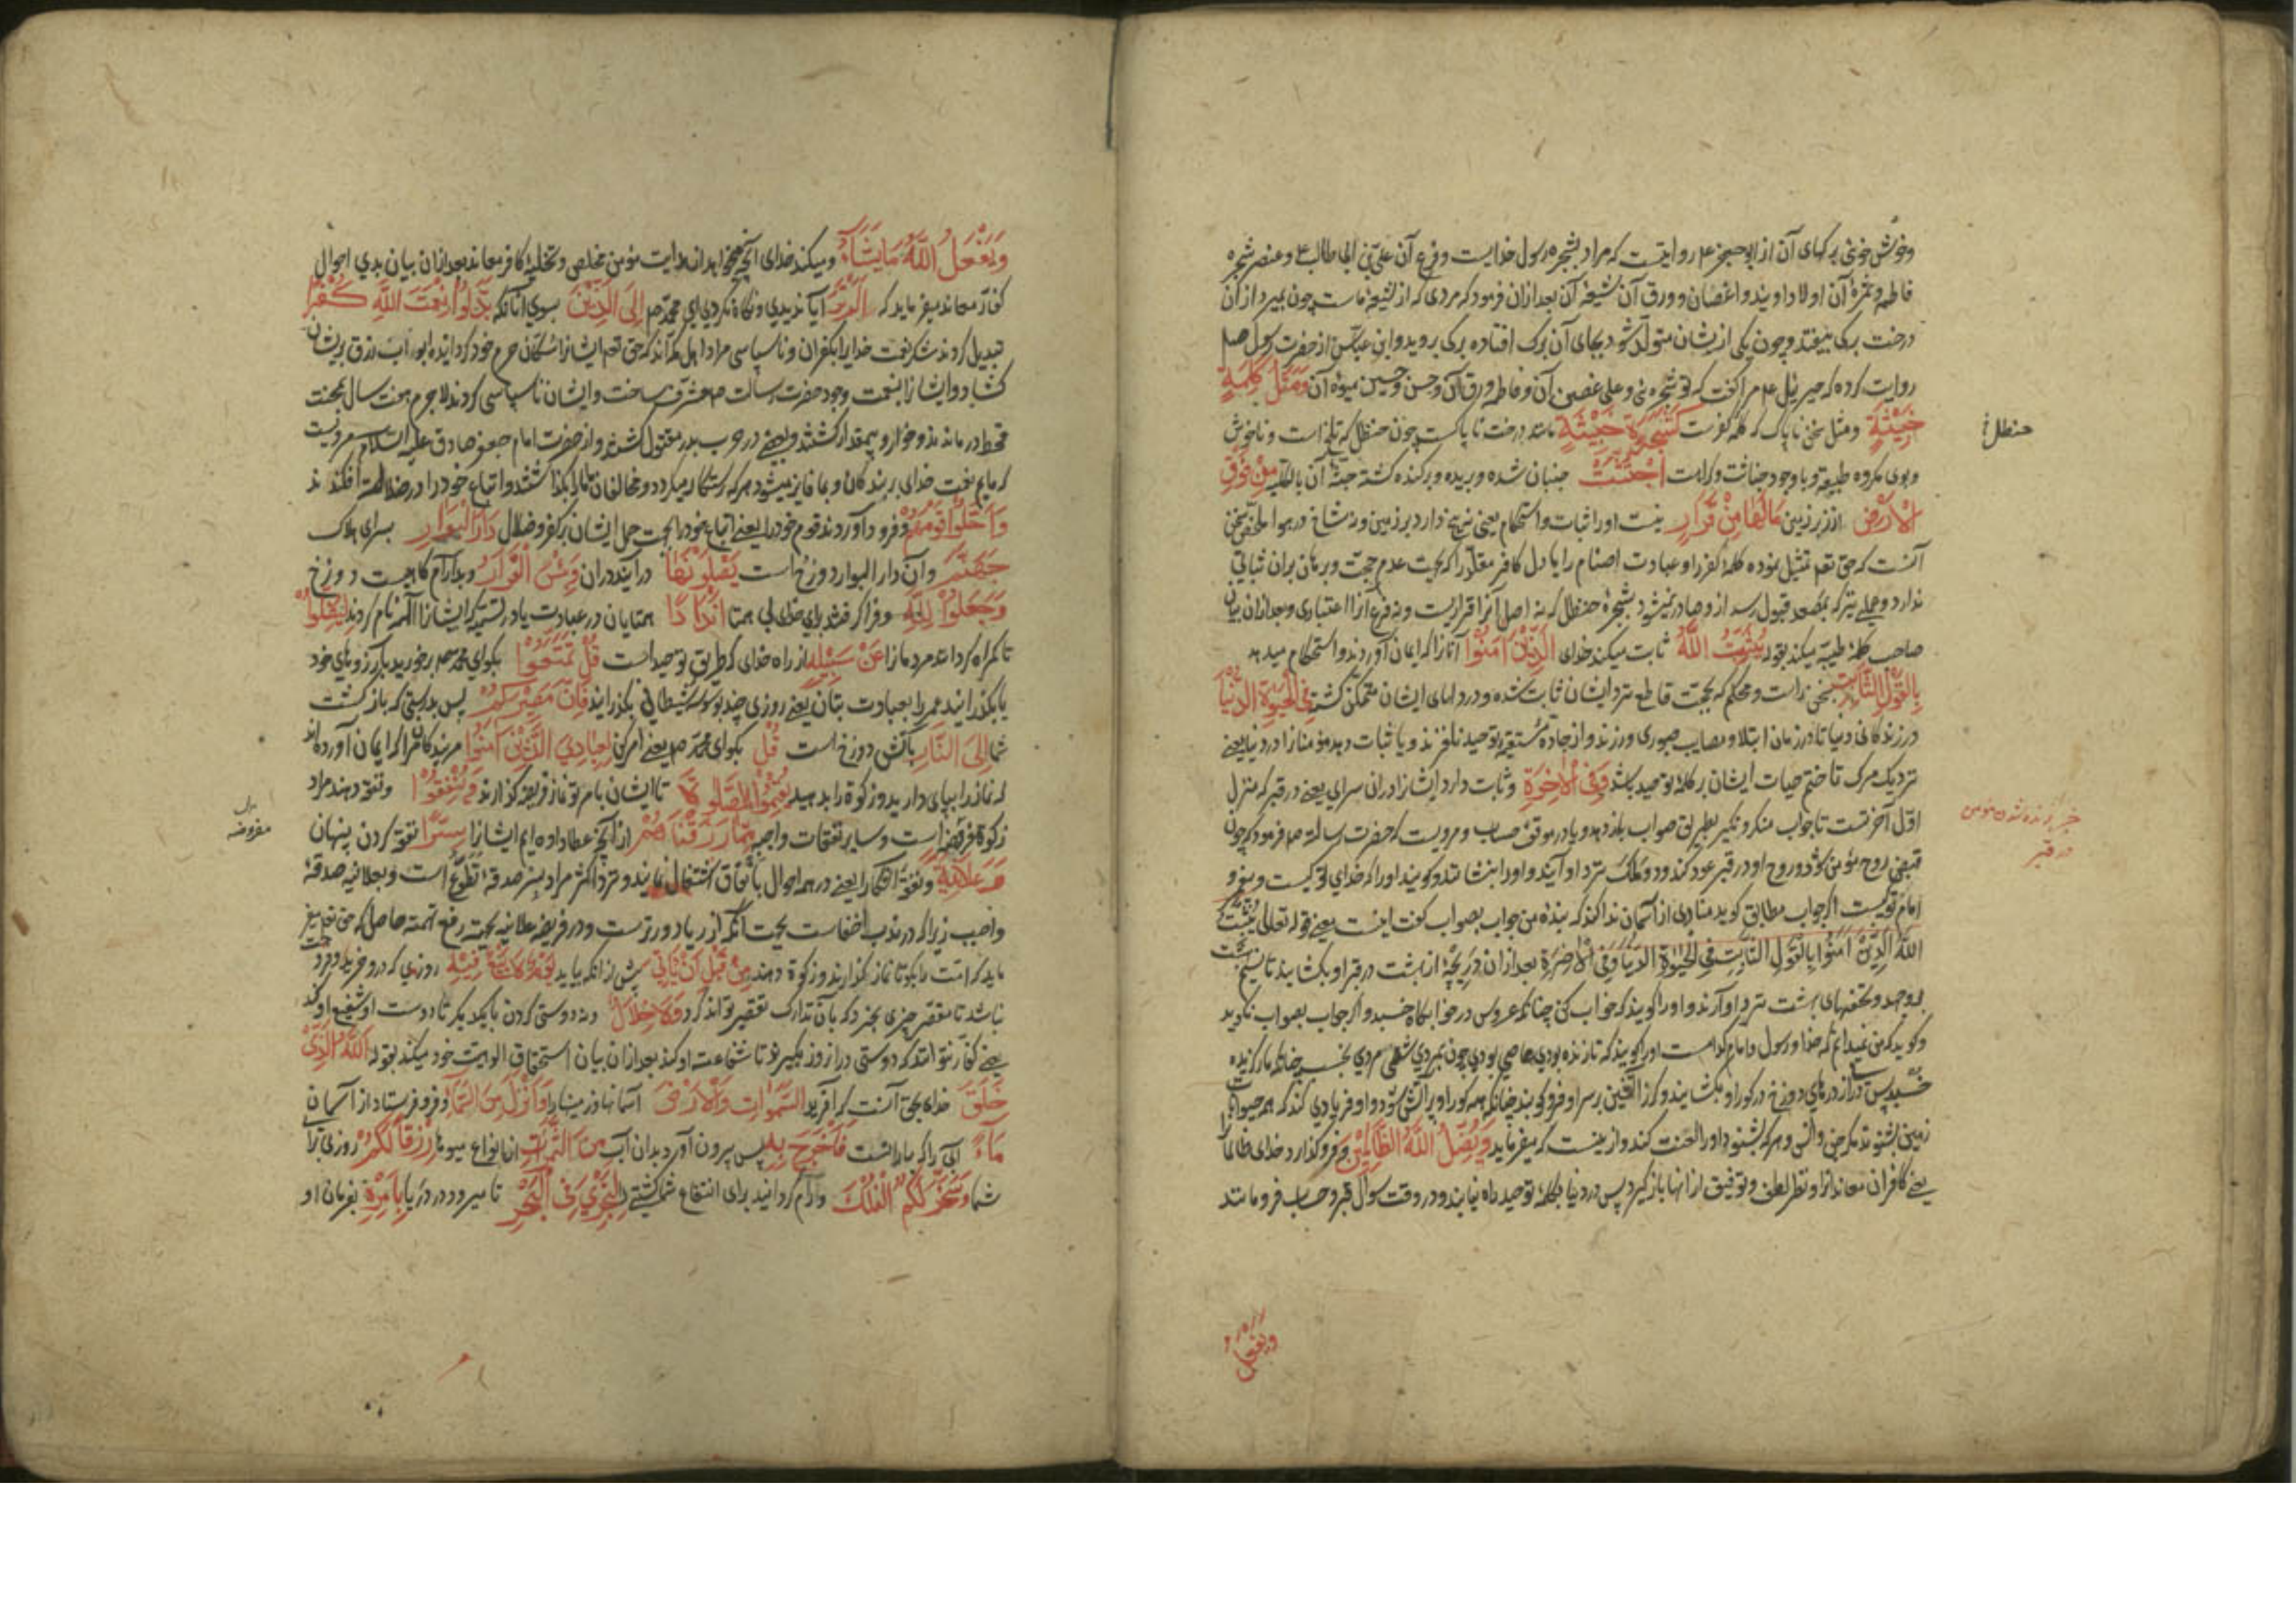 وخوش خوئی برکهای آن از ابو جعفر ع م روایتست که مراد بشجره رسول خدایست وفرع آن علی بن ابی طالب ع وعنصر شجره
فاطمه وثمرهٔ آن اولاد اویند واغصان وورق آن شیعهٔ آن بعد ازان فرمود که مردی که از شیعهٔ ماست چون بمیرد از آن
درخت برکی بیفتد وچون یکی ازیشان متولد شود بجای آن برک افتاده برکی بروید وابن عباس از حضرت رسول صلم
روایت کرده که جبرئیل ع م مرا کفت که تو شجره ئی وعلی غصن آن وفاطمه ورق آن وحسن وحسین میوهٔ آن وَمَثَلُ كَلِمَةٍ
خَبِيثَةٍ ومثل سخن ناپاک که کلمهٔ کفرست كَشَجَرَةٍ خَبِيثَةٍ مانند درخت ناپاکست چون حنظل که تلخ است وناخوش
حنظل
وبوی مکروه طبیعه وباوجود خباثت وکراهت اجْتُثَّتْ جنبان شده وبریده وبرکنده کشته جثهٔ آن بالکلیه مِنْ فَوْقِ
الْأَرْضِ از زبر زمین مَا لَهَا مِنْ قَرَارٍ نیست اورا ثبات واستحکام یعنی نه بیخ دارد بر زمین ونه شاخ در هوا ملخص سخن
آنست که حق تعم تمثیل نموده کلمهٔ کفر را وعبادت اصنام را یا دل کافر مقلد را که بجهت عدم حجت وبرهان بران ثباتی
ندارد وعملی نیز که بمصعد قبول رسد ازو صادر نمیشود بشجرهٔ حنظل که نه اصل آنرا قراریست ونه فرع آنرا اعتباری وبعد ازان بیان
صاحب کلمهٔ طیبه میکند بقوله يُثَبِّتُ اللَّهُ ثابت میکند خدای الَّذِينَ آمَنُوا آنانرا که ایمان آورده اند واستحکام میدهد
بِالْقَوْلِ الثَّابِتِ بسخن راست ومحکم که بحجت قاطع نزد ایشان ثابت شده ودر دلهای ایشان متمکن کشته فِي الْحَيَوةِ الدُّنْيَا
در زندکانی دنیا تا در زمان ابتلا ومصایب صبوری ورزند واز جادهٔ مستقیم توحید نلغزند ویا ثبات دهد مؤمنانرا در دنیا یعنے
نزدیک مرک تا ختم حیات ایشان بر کلمهٔ توحید باشد وَفِي الْآخِرَةِ وثابت دارد ایشانرا در آن سرای یعنے در قبر که منزل
اول آخرتست تا جواب منکر ونکیر بطریق صواب باز دهد ویا در موقف حساب ومرویست که حضرت رسالة صم فرمود که چون
قبض روح مؤمن شود وروح او در قبر عود کند ودو ملک نزد او آیند واورا بنشانند وکویند اورا که خدای تو کیست وپیغمبر و
امام تو کیست اکر جواب مطابق کوید منادی از آسمان ندا کند که بندهٔ من جواب بصواب کفت اینست یعنے قوله تعالی يُثَبِّتُ
اللَّهُ الَّذِينَ آمَنُوا بِالْقَوْلِ الثَّابِتِ فِي الْحَيَوةِ الدُّنْيَا وَفِي الْآخِرَةِ بعد ازان دریچهٔ از بهشت در قبر او بکشایند تا نسیم بهشت
بدو جهد وتحفهای بهشت نزد او آرند واورا کویند که خواب کن چنانکه عروس در خوابکاه خسبد واکر جواب بصواب نکوید
وکوید که من نمیدانم که خدا ورسول وامام کدامست اورا کویند که تا زنده بودی عاصی بودی چون بمردی شقی مردی بخسب چنانکه مار کزیده
خسبد پس دری از درهای دوزخ در کور او بکشایند وکرز آتشین بر سر او فرو کوبند چنانکه همه کور او پر آتش شود واو فریادی کند که همه حیوانات
زمین بشنوند مکر جن وانس وهر که بشنود اورا لعنت کند وازینست که میفرماید وَيُضِلُّ اللَّهُ الظَّالِمِينَ وفرو کذارد خدای ظالمانرا
یعنے کافران معاند را ونظر لطف وتوفیق از انها باز کیرد پس در دنیا بکلمهٔ توحید راه نیابند ودر وقت سؤال قبر وحساب فرو مانند
خبر زنده شدن مومن
در قبر
ویفعل
وَيَفْعَلُ اللَّهُ مَا يَشَاءُ ومیکند خدای آنچه میخواهد از هدایت مؤمن مخلص وتخلیهٔ کافر معاند بعد ازان بیان بدی احوال
کفار معاند میفرماید که أَلَمْ تَرَ آیا ندیدی ونکاه نکردی ای محمد صم إِلَى الَّذِينَ بسوی آنانکه بَدَّلُوا نِعْمَتَ اللَّهِ كُفْرًا
تبدیل کردند شکر نعمت خدایرا بکفران وناسپاسی مراد اهل مکه اند که حق تعم ایشانرا ساکنان حرم خود کردانیده ابواب رزق بریشان
کشاد وایشانرا بنعمت وجود حضرت رسالت صم مشرف ساخت وایشان ناسپاسی کردند لاجرم هفت سال بمحنت
قحط درماندند وخوار وبیمقدار کشتند وبعضے در حرب بدر مقتول شدند واز حضرت امام جعفر صادق علیه السلام مرویست
که مایم نعمت خدای بر بندکان وبما فایز میشود هر که رستکار میکردد ومخالفان ما را بکذاشتند واتباع خود را در ضلالت افکندند
وَأَحَلُّوا قَوْمَهُمْ وفرود آوردند قوم خود را یعنے اتباع خود را بجهت حمل ایشان بر کفر وضلال دَارَ الْبَوَارِ بسرای هلاک
جَهَنَّمَ وآن دار البوار دوزخ است يَصْلَوْنَهَا درآیند دران وَبِئْسَ الْقَرَارُ وبد آرام کاهیست دوزخ
وَجَعَلُوا لِلَّهِ وفرا کرفتند برای خدای بی همتا أَنْدَادًا همتایان در عبادت یا در تسمیه که ایشانرا الهه نام کردند لِيُضِلُّوا
تا کمراه کردانند مردمانرا عَنْ سَبِيلِهِ از راه خدای که طریق توحید است قُلْ تَمَتَّعُوا بکو ای محمد صم برخورید بآرزوهای خود
یا بکذرانید عمر را بعبادت بتان یعنے روزی چند بوسوسهٔ شیطانی بکذرانید فَإِنَّ مَصِيرَكُمْ پس بدرستی که بازکشت
شما إِلَى النَّارِ بآتش دوزخ است قُلْ بکو ای محمد صم یعنے امر کن لِعِبَادِيَ الَّذِينَ آمَنُوا مر بندکان مرا که ایمان آورده اند
که نماز را بپای دارید وزکوة را بدهید يُقِيمُوا الصَّلَوةَ تا ایشان بامر تو نماز فریضه کذارند وَيُنْفِقُوا ونفقه دهند مراد
زکوة فرض است وسایر نفقات واجبه مِمَّا رَزَقْنَاهُمْ از آنچه عطا داده ایم ایشانرا سِرًّا نفقه کردن پنهان
مفروضه
وَعَلَانِيَةً ونفقهٔ آشکارا یعنے در همه احوال بانفاق اشتغال نمایند ونزد اکثر مراد بسر صدقهٔ تطوع است وبعلانیه صدقهٔ
واجب زیرا که در ندب اخفاست بجهت آنکه از ریا دورترست ودر فریضه علانیه بجهت رفع تهمة حاصل که حق تعم میفر
ماید که امتت را بکو تا نماز کذارند وزکوة دهند مِنْ قَبْلِ أَنْ يَأْتِيَ پیش از انکه بیاید يَوْمٌ لَا بَيْعٌ فِيهِ روزی که درو خرید وفروخت
نباشد تا مقصر چیزی بخرد که بآن تدارک تقصیر تواند کرد وَلَا خِلَالٌ ونه دوستی کردن با یکدیکر تا دوست او شفیع او کند
یعنے کفار نتوانند که دوستی دران روز بکیرند تا شفاعت او کند بعد ازان بیان استحقاق الوهیت خود میکند بقوله اللَّهُ الَّذِي
خَلَقَ خدای بحق آنست که آفرید السَّمَوَاتِ وَالْأَرْضَ آسمانها وزمینها را وَأَنْزَلَ مِنَ السَّمَاءِ وفرو فرستاد از آسمان
مَاءً آبی را که بارانست فَأَخْرَجَ بِهِ پس بیرون آورد بدان آب مِنَ الثَّمَرَاتِ از انواع میوها رِزْقًا لَكُمْ روزی برای
شما وَسَخَّرَ لَكُمُ الْفُلْكَ ورام کردانید برای انتفاع شما کشتے لِتَجْرِيَ فِي الْبَحْرِ تا میرود در دریا بِأَمْرِهِ بفرمان او